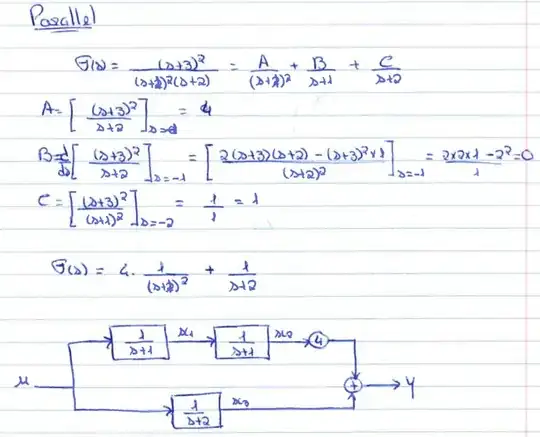 Parallel
G(s) = (s+3)² / (s+1)²(s+2) = A / (s+1)² + B / s+1 + C / s+2
A = [ (s+3)² / s+2 ]s=-1 = 4
B = d/ds [ (s+3)² / s+2 ]s=-1 = [ 2(s+3)(s+2) - (s+3)² × 1 / (s+2)² ]s=-1 = 2×2×1 - 2² / 1 = 0
C = [ (s+3)² / (s+1)² ]s=-2 = 1 / 1 = 1
G(s) = 4. 1 / (s+1)² + 1 / s+2
1 / s+1 x₁ 1 / s+1 x₂ 4
u + y
1 / s+2 x₃